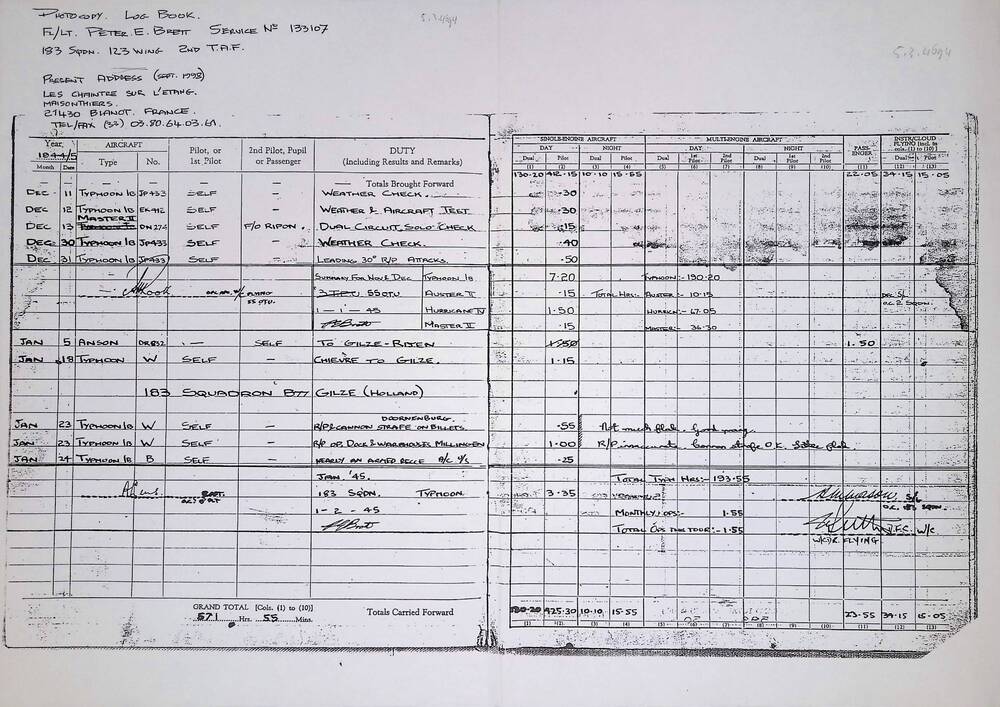 PHOTOCOPY. LOG BOOK.
FL/LT. PETER. E. BRETT SERVICE No 133107
183 SQDN. 123 WING 2ND T.A.F.
5.3.4694
PRESENT ADDRESS (SEPT. 1998)
LES CHAINTRE SUR L'ETANG.
MAISONTHIERS.
21430 BIANOT. FRANCE.
TEL/FAX (33) 03.80.64.03.61.
Year, 1944/5 AIRCRAFT Pilot, or 1st Pilot 2nd Pilot, Pupil or Passenger DUTY (Including Results and Remarks) SINGLE-ENGINE AIRCRAFT MULTI-ENGINE AIRCRAFT PASS-ENGER INSTR/CLOUD FLYING [Incl. in cols. (1) to (10)]
DAY NIGHT DAY NIGHT
Month Date Type No. Dual Pilot Dual Pilot Dual 1st Pilot 2nd Pilot Dual 1st Pilot 2nd Pilot Dual Pilot
(1) (2) (3) (4) (5) (6) (7) (8) (9) (10) (11) (12) (13)
— — — — — — Totals Brought Forward 130.20 412.15 10.10 15.55 22.05 34.15 15.05
DEC 11 TYPHOON IB JP433 SELF — WEATHER CHECK. .30
DEC 12 TYPHOON IB EK412 SELF — WEATHER & AIRCRAFT TEST. .30
DEC 13 MASTER II DN274 SELF F/O RIPON. DUAL CIRCUIT, SOLO CHECK. .15
DEC 30 TYPHOON IB JP433 SELF — WEATHER CHECK. .40
DEC 31 TYPHOON IB JP433 SELF — LEADING 30° R/P ATTACKS. .50
SUMMARY FOR NOV & DEC TYPHOON IB 7.20 TYPHOON:- 190.20
55 OTU AUSTER II .15 TOTAL HRS:- AUSTER:- 10.15
55 OTU.
1-1-45 HURRICANE IV 1.50 HURRICN:- 67.05
PEBrett MASTER II .15 MASTER:- 36.30
JAN 5 ANSON — SELF TO GILZE-RIJEN 1.50
JAN 18 TYPHOON W SELF — CHIEVRE TO GILZE. 1.15
183 SQUADRON GILZE (HOLLAND)
JAN 23 TYPHOON IB W SELF — R/P & CANNON STRAFE ON BILLETS. DOORNENBURG. .55 Not much flak
JAN 23 TYPHOON IB W SELF — R/P OP. DOCK & WAREHOUSES MILLINGEN 1.00 R/P inaccurate Cannon strafe O.K. Like flak.
JAN 24 TYPHOON IB B SELF — NEARLY AN ARMED RECCE A/C U/S .25
JAN. '45. TOTAL TYPH HRS:- 193.55
183 SQDN. TYPHOON 3.35 S/L O.C. 183 SQDN.
1-2-45 MONTHLY OPS:- 1.55
PEBrett TOTAL OPS THIS TOUR:- 1.55 D.F.C. W/C
W/C FLYING
GRAND TOTAL [Cols. (1) to (10)] 571 Hrs. 55 Mins. Totals Carried Forward 130.20 425.30 10.10 15.55 23.55 34.15 15.05
(1) (2) (3) (4) (5) (6) (7) (8) (9) (10) (11) (12) (13)